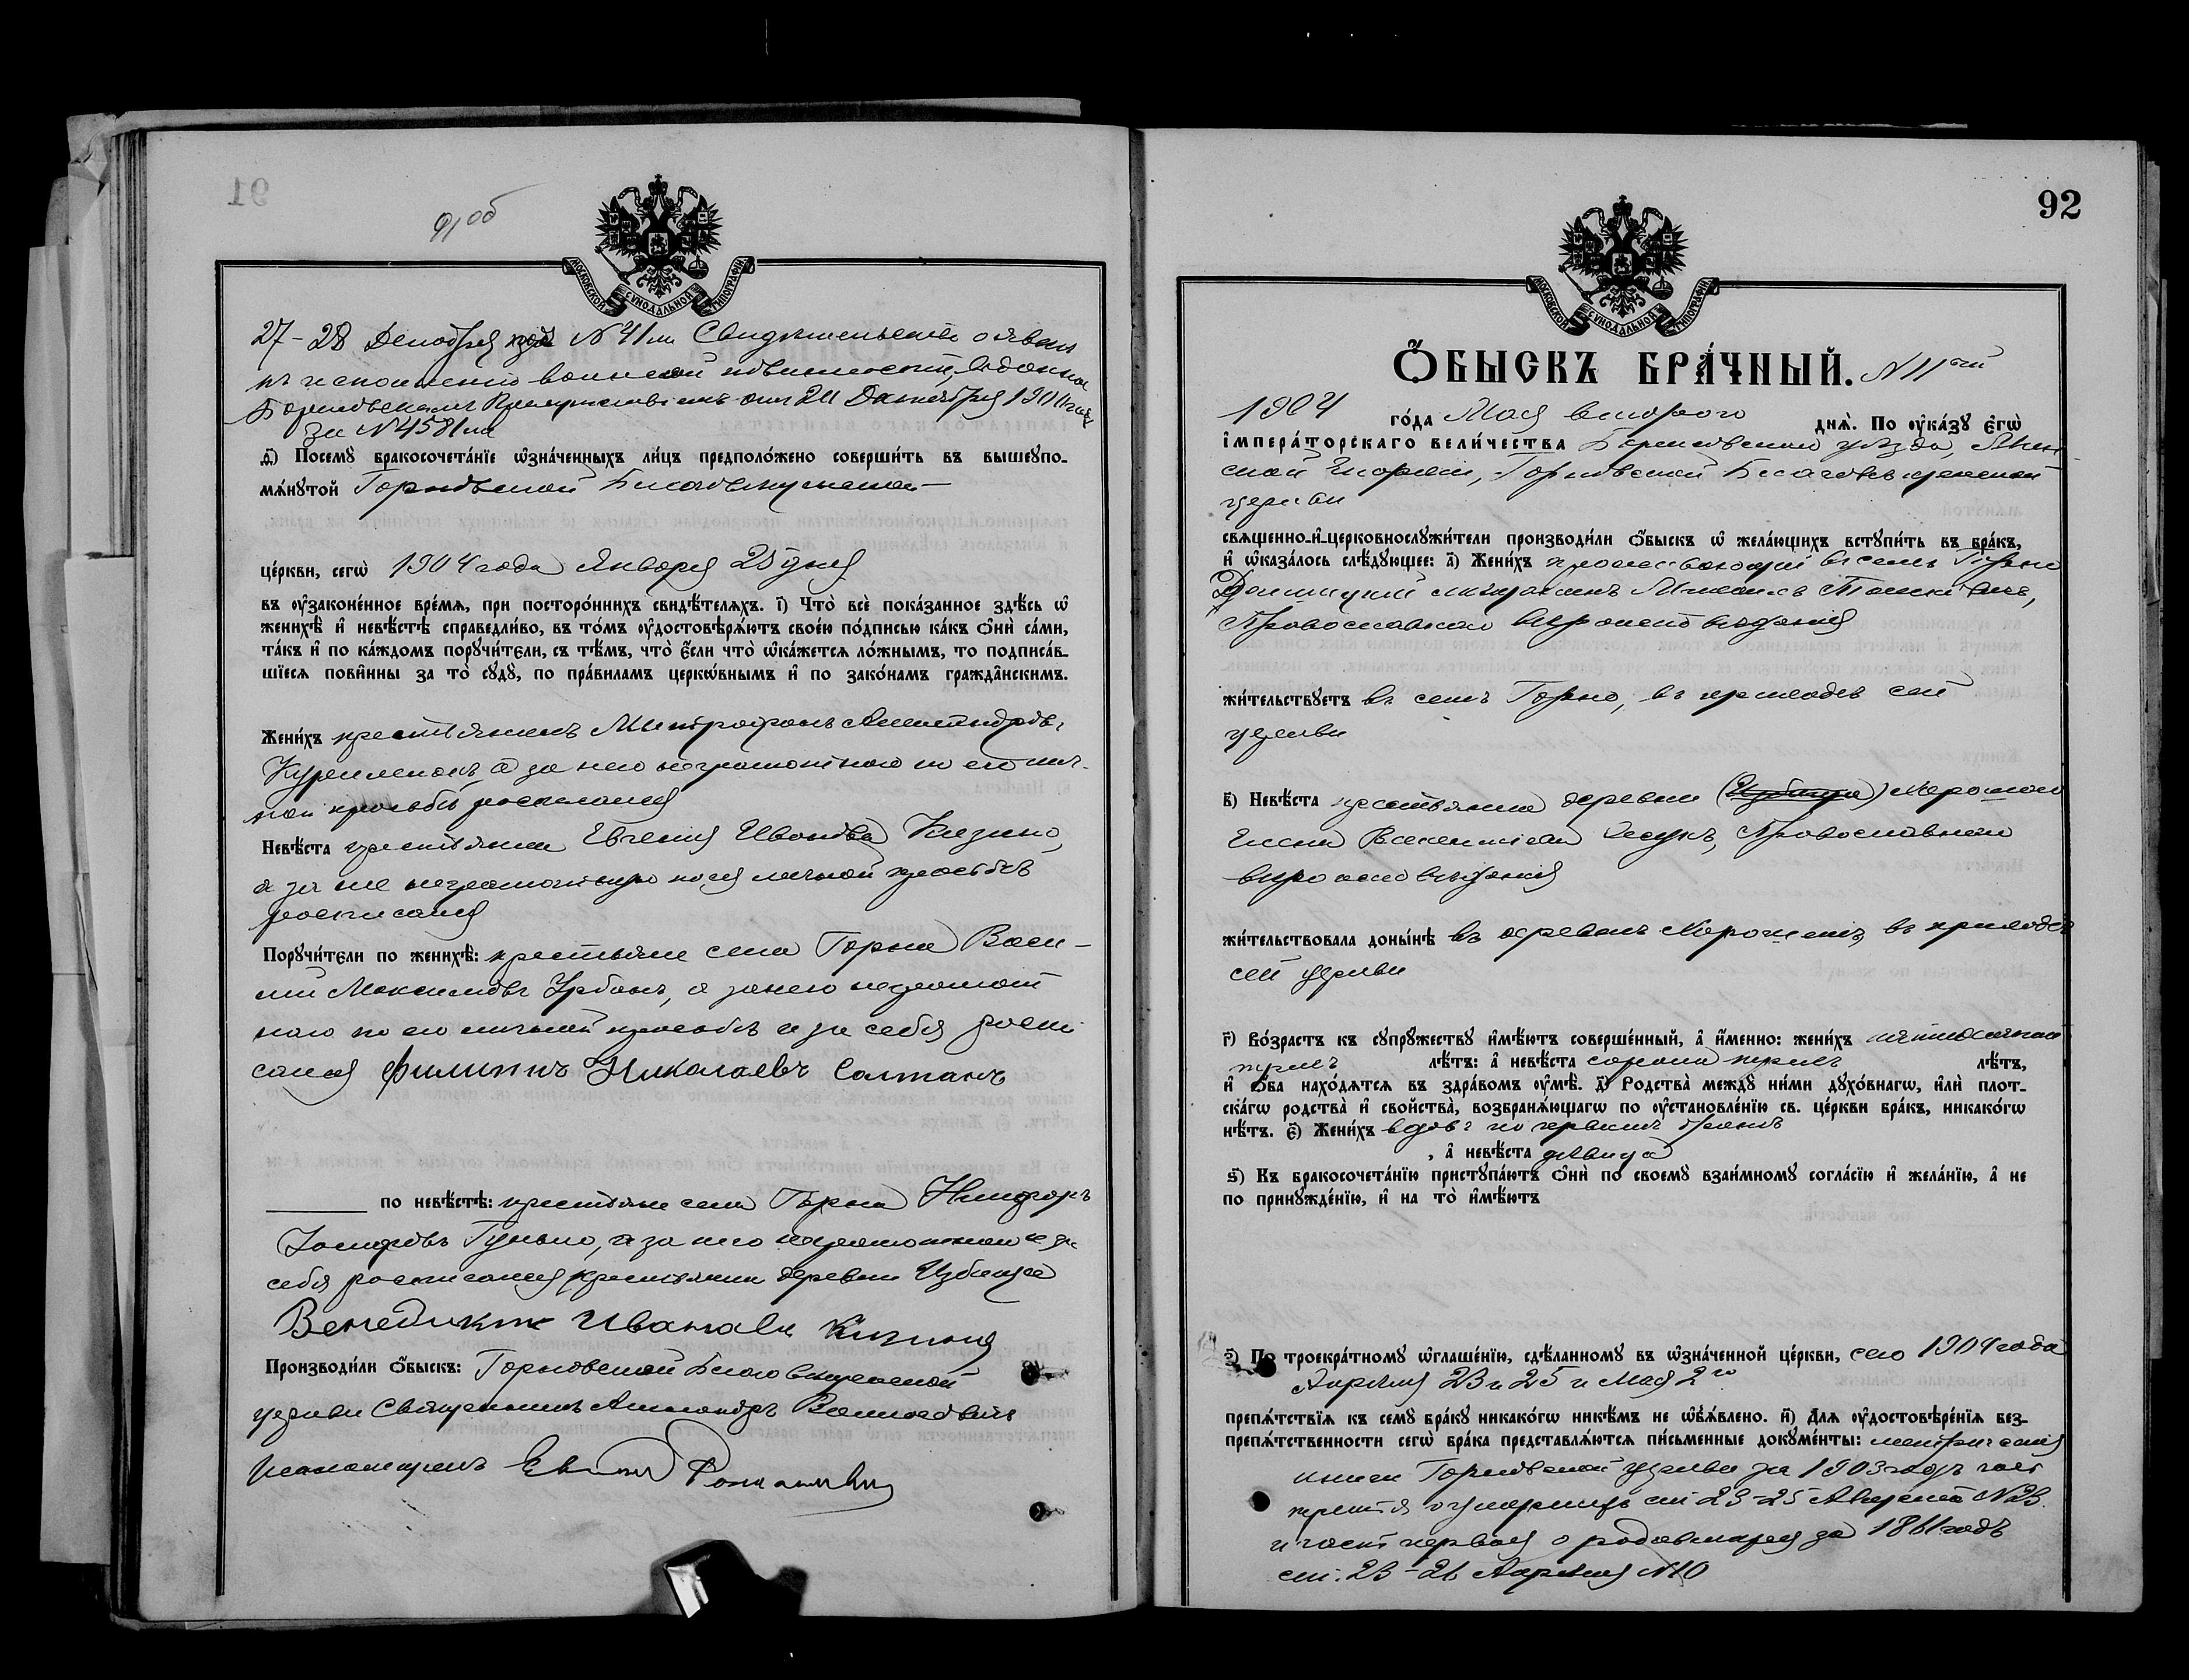 91
91 об
МОСКОВСКОЙ СѴНОДАЛЬНОЙ ТИПОГРАФІИ
27-28 Декабря № 41 и Свидѣтельство о явкѣ
къ исполненію воинской повинности, выданное
Борисовскимъ Присутствіемъ отъ 24 Октября 1901 года
за № 4581 мъ
д҃і) Посемꙋ̀ бракосочета́нїе ѡ҆зна́ченныхъ ли́цъ предполо́жено соверши́ть въ вышеꙋпо-
мѧ́нꙋтой Горновской Благовѣщенской
це́ркви, сегѡ̀ 1904 года Января 25 дня
въ ᲂу҆зако́ненное вре́мѧ, при посторо́ннихъ свидѣ́телѧхъ. і҃) Что̀ всѐ пока́занное здѣ́сь ѡ҆
женихѣ̀ и҆ невѣ́стѣ справедли́во, въ то́мъ ᲂу҆достовѣрѧ́ютъ свое́ю по́дписью ка́къ ѻ҆нѝ са́ми,
та́къ и҆ по ка́ждомъ порꙋчи́тели, съ тѣ́мъ, что̀ є҆́сли что̀ ѡ҆ка́жетсѧ ло́жнымъ, то подписа́в-
шїесѧ пови́нны за то̀ сꙋдꙋ̀, по пра́виламъ церко́внымъ и҆ по зако́намъ гражда́нскимъ.
Жени́хъ крестьянинъ Митрофанъ
а за него неграмотнаго по его лич-
ной просьбѣ росписался
Невѣ́ста крестьянка Евгенія Иванова
а за нее неграмотную по ея личной просьбѣ
росписался
Порꙋчи́тели по женихѣ̀: крестьяне села Горна Васи-
лій Максимовъ Урбанъ, а за него неграмот
наго по его личной просьбѣ и за себя роспи
сался Филиппъ Николаевъ Салтанъ
по невѣ́стѣ: крестьяне села Горна Никифоръ
Іосифовъ а за него неграмотнаго и за
себя росписался крестьянинъ деревни Избища
Венедиктъ Иванавъ
Производи́ли ѻ҆́быскъ: Горновской Благовѣщенской
церкви Священникъ Александръ
Псаломщикъ
92
МОСКОВСКОЙ СѴНОДАЛЬНОЙ ТИПОГРАФІИ
Ѻ҆БЫСКЪ БРА́ЧНЫЙ. № 11ый
1904 го́да Мая второго днѧ̀. По ᲂу҆ка́зꙋ є҆гѡ̀
і҆мпера́торскаго вели́чества Борисовскаго уѣзда, Мин-
ской Епархіи, Горновской Благовѣщенской
церкви
свѧще́нно-и҆-церковнослꙋжи́тели производи́ли ѻ҆́быскъ ѡ҆ жела́ющихъ встꙋпи́ть въ бра́къ,
и҆ ѡ҆каза́лось слѣ́дꙋющее: а҃) Жени́хъ проживающій въ селѣ Горно
мѣщанинъ Михаилъ
Православнаго вѣроисповѣданія
жи́тельствꙋетъ въ селѣ Горно, въ приходѣ сей
церкви
в҃) Невѣ́ста крестьянка деревни (Избища)
Елена Православнаго
вѣроисповѣданія
жи́тельствовала доны́нѣ въ деревнѣ въ приходѣ
сей церкви
г҃) Во́зрастъ къ сꙋпрꙋ́жествꙋ и҆мѣ́ютъ соверше́нный, а҆ и҆́менно: жени́хъ
лѣ́тъ: а҆ невѣ́ста сорока трехъ лѣ́тъ,
и҆ ѻ҆́ба нахо́дѧтсѧ въ здра́вомъ ᲂу҆мѣ̀. д҃) Родства̀ междꙋ ни́ми дꙋхо́внагѡ, и҆лѝ плот-
ска́гѡ родства̀ и҆ свойства̀, возбранѧ́ющагѡ по ᲂу҆становле́нїю св. це́ркви бра́къ, никако́гѡ
нѣ́тъ. є҃) Жени́хъ вдовъ по первомъ бракѣ
, а҆ невѣ́ста дѣвица
ѕ҃) Къ бракосочета́нїю пристꙋпа́ютъ ѻ҆нѝ по своемꙋ̀ взаи́мномꙋ согла́сїю и҆ жела́нїю, а҆ не
по принꙋжде́нїю, и҆ на то̀ и҆мѣ́ютъ
з҃) По троекра́тномꙋ ѡ҆глаше́нїю, сдѣ́ланномꙋ въ ѡ҆зна́ченной це́ркви, сего 1904 года
Апрѣля 23 и 25 и Мая 2го
препѧ́тствїѧ къ семꙋ̀ бра́кꙋ никако́гѡ никѣ́мъ не ѡ҆б̾ѧ́влено. и҃) Длѧ ᲂу҆достовѣре́нїѧ без-
препѧ́тственности сегѡ̀ бра́ка представлѧ́ютсѧ пи́сьменные докꙋме́нты: метрическія
книги Горновской церкви за 1903 годъ часть
третья о умершихъ ст. 23-25 Августа № 23.
и часть первая о родившихся за 1861 годъ
ст. 23-26 Апрѣля № 10